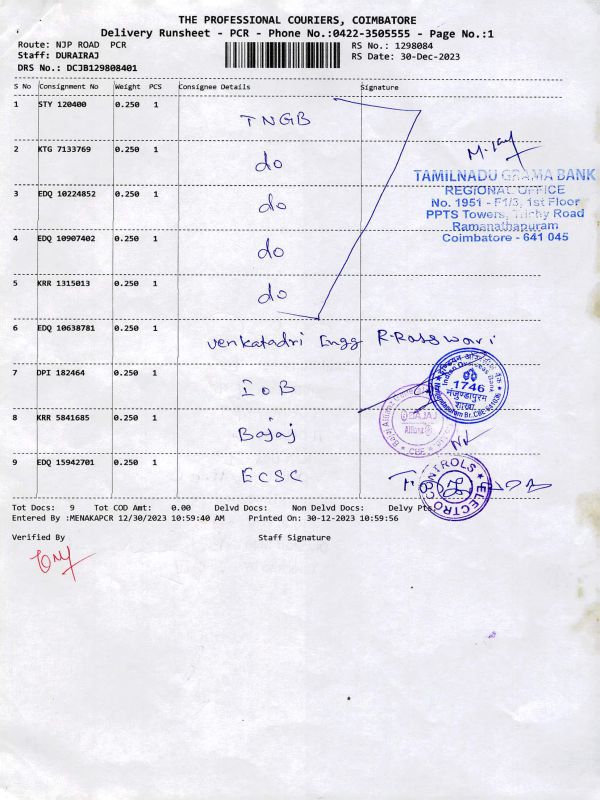 THE PROFESSIONAL COURIERS, COIMBATORE
Delivery Runsheet - PCR - Phone No.:0422-3505555 - Page No.:1
Route: NJP ROAD PCR RS No.: 1298084
Staff: DURAIRAJ RS Date: 30-Dec-2023
DRS No.: DCJB129808401
S No Consignment No Weight PCS Consignee Details Signature
1 STY 120400 0.250 1 TNGB
2 KTG 7133769 0.250 1 do
TAMILNADU GRAMA BANK
REGIONAL OFFICE
3 EDQ 10224852 0.250 1 do
No. 1951 - F1/3, 1st Floor
PPTS Towers, Trichy Road
Ramanathapuram
4 EDQ 10907402 0.250 1 do
Coimbatore - 641 045
5 KRR 1315013 0.250 1 do
6 EDQ 10638781 0.250 1 venkatadri Engg
7 DPI 182464 0.250 1 IOB
Indian Overseas Bank
1746
शाखा
8 KRR 5841685 0.250 1 Bajaj
BAJAJ
Allianz
CBE
9 EDQ 15942701 0.250 1 ECSC
CONTROLS ELECTRO
Tot Docs: 9 Tot COD Amt: 0.00 Delvd Docs: Non Delvd Docs: Delvy Pts
Entered By :MENAKAPCR 12/30/2023 10:59:40 AM Printed On: 30-12-2023 10:59:56
Verified By Staff Signature